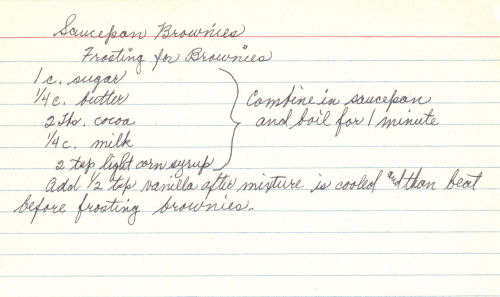 Saucepan Brownies
Frosting for Brownies
1 c. sugar
1/4 c. butter
2 Tbs. cocoa
1/4 c. milk
2 tsp light corn syrup
Combine in saucepan
and boil for 1 minute
Add 1/2 tsp vanilla after mixture is cooled and than beat
before frosting brownies.